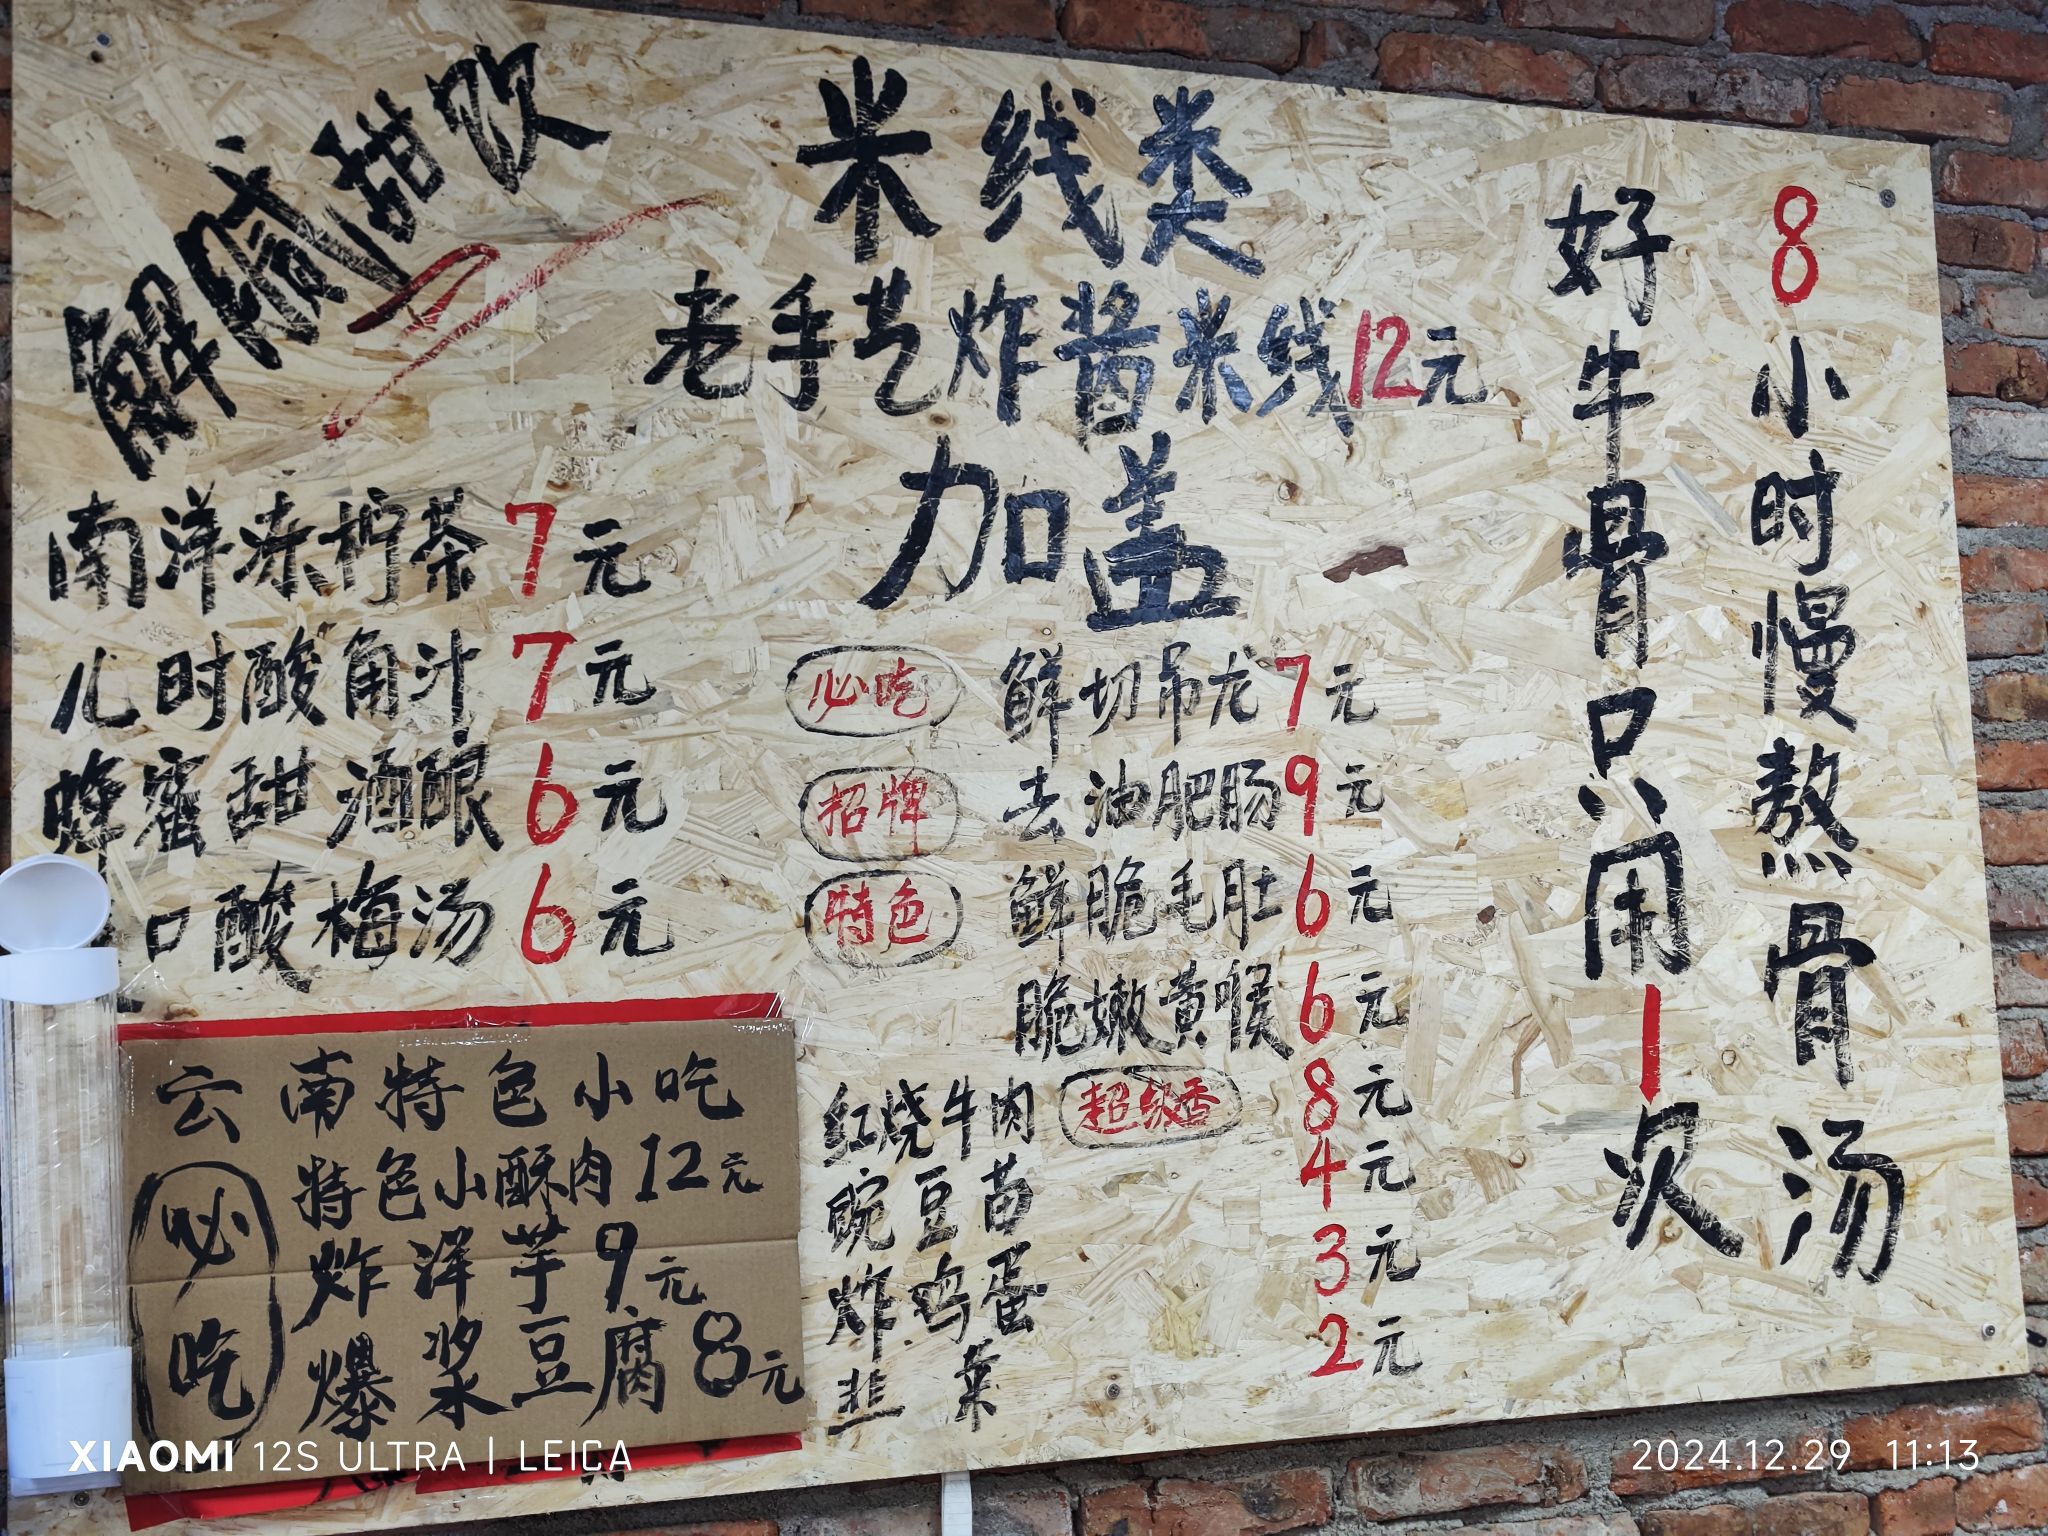 解腻甜饮
南洋冻柠茶7元
儿时酸角汁7元
蜂蜜甜酒酿6元
口酸梅汤6元
云南特色小吃
必吃
特色小酥肉12元
炸洋芋9元
爆浆豆腐8元
米线类
老手艺炸酱米线12元
加盖
必吃 鲜切吊龙7元
招牌 去油肥肠9元
特色 鲜脆毛肚6元
脆嫩黄喉6元
红烧牛肉 超级香 8元
豌豆苗 4元
炸鸡蛋 3元
韭菜 2元
8小时慢熬骨汤
好牛骨只用1次
XIAOMI 12S ULTRA | LEICA
2024.12.29 11:13